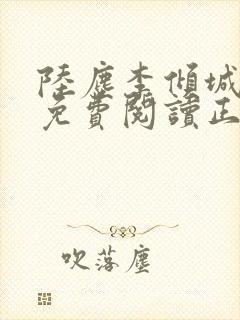 陸塵李傾城
免費閱讀正
吹落塵